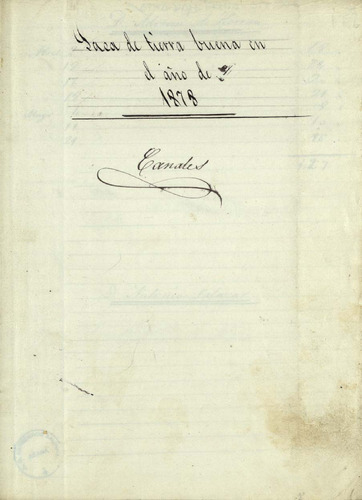 Saca de tierra buena en
el año de
1878
Canales